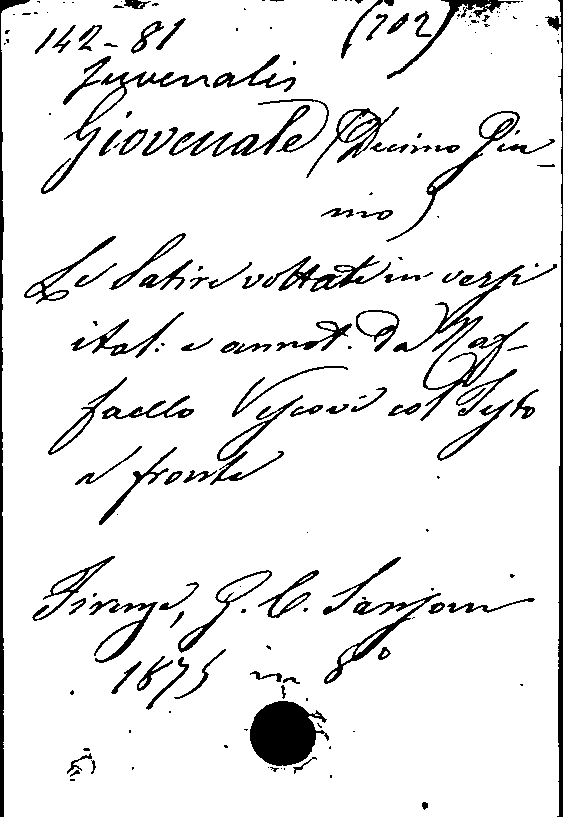 142-81 (702)
Juvenalis
Giovenale (Decimo Giu-
nio)
Le Satire voltate in versi
ital: e annot. da Raf-
faello Vescovi col Testo
a fronte
Firenze, G. C. Sansoni
1875 in 8°